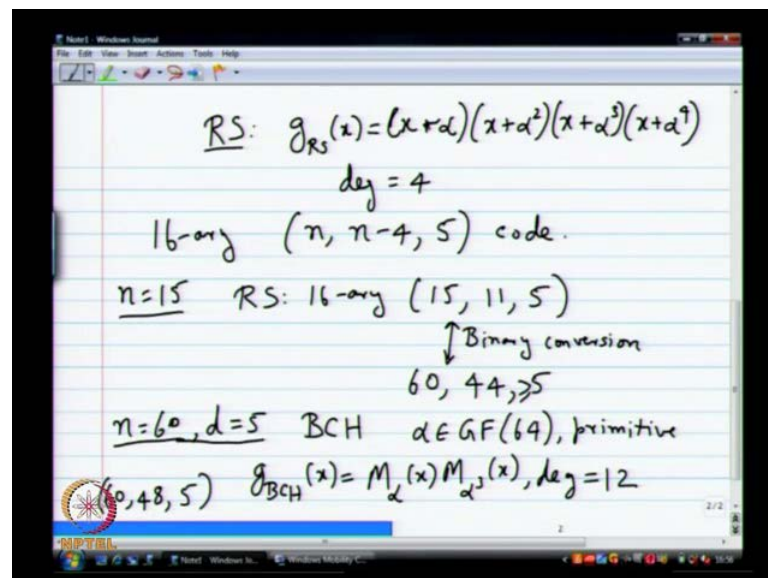 Note1 - Windows Journal
File Edit View Insert Actions Tools Help
RS: g_RS(x) = (x+α)(x+α²)(x+α³)(x+α⁴)
deg = 4
16-ary (n, n-4, 5) code.
n=15 RS: 16-ary (15, 11, 5)
↕ Binary conversion
60, 44, ≥5
n=60, d=5 BCH α∈GF(64), primitive
(60,48,5) g_BCH(x) = M_α(x) M_α³(x), deg = 12
2/2
2
NPTEL
Note1 - Windows Jo...
Windows Mobility C...
16:56